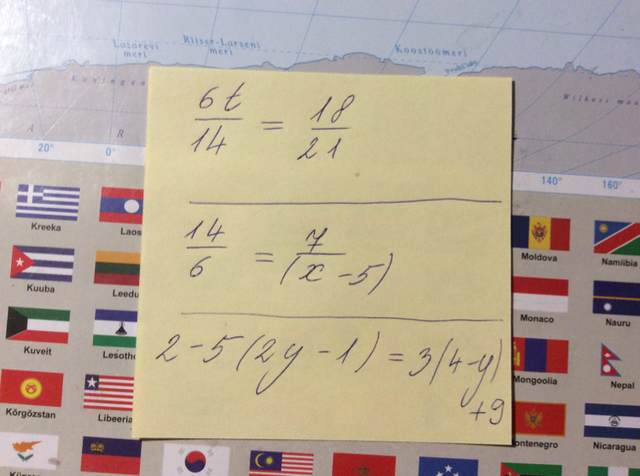 Lazarevi meri
Riiser-Larseni meri
Koostöömeri
20°
0°
140°
160°
6t/14 = 18/21
14/6 = 7/(x-5)
2-5(2y-1) = 3(4-y)
+9
Kreeka
Laos
Kuuba
Leedu
Kuveit
Lesotho
Kõrgõzstan
Libeeria
Moldova
Namiibia
Monaco
Nauru
Mongoolia
Nepal
ontenegro
Nicaragua